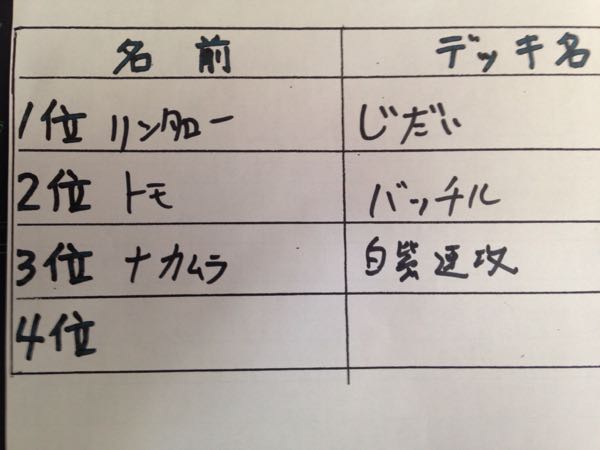 名前 デッキ名
1位 リンタロー じだい
2位 トモ バッチル
3位 ナカムラ 白紫速攻
4位